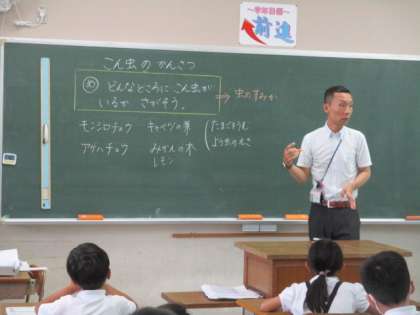 ～学年目標～
前進
こん虫のかんさつ
め どんなところに こん虫が
いるか さがそう。
⇒ 虫のすみか
モンシロチョウ キャベツの葉
アゲハチョウ みかんの木
レモン
たまごをうむ
よう虫のえさ